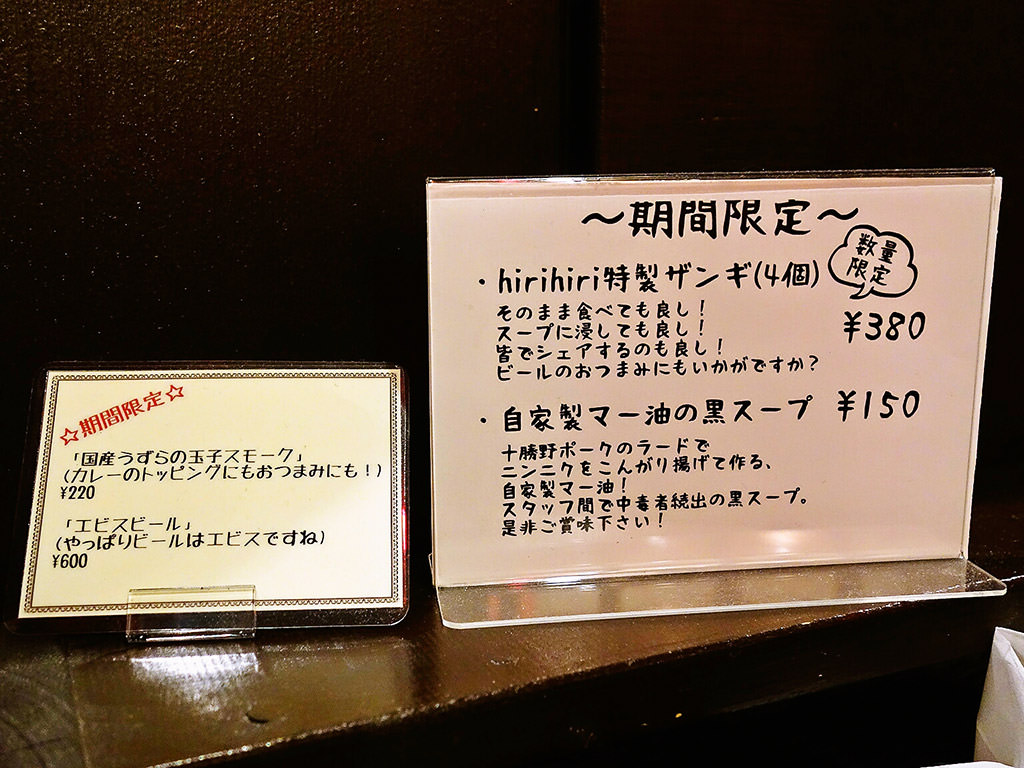 ☆期間限定☆
「国産うずらの玉子スモーク」
(カレーのトッピングにもおつまみにも！)
¥220
「エビスビール」
(やっぱりビールはエビスですね)
¥600
～期間限定～
・hirihiri特製ザンギ(4個)
数量
限定
¥380
そのまま食べても良し！
スープに浸しても良し！
皆でシェアするのも良し！
ビールのおつまみにもいかがですか？
・自家製マー油の黒スープ ¥150
十勝野ポークのラードで
ニンニクをこんがり揚げて作る、
自家製マー油！
スタッフ間で中毒者続出の黒スープ。
是非ご賞味下さい！